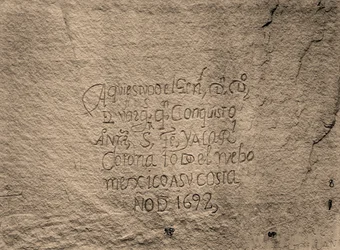 Aqui estuvo el Genl. Dn. Do.
D Varg. qn Conquisto
Anrâ. S. Fe, Ya la Rl
Corona todo el nvebo
mexico ASV costa
AÑOD 1692,